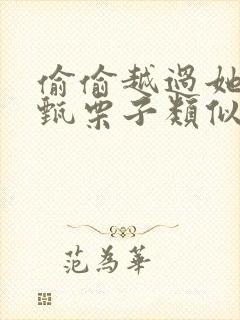 偷偷越過她
甄栗子類似
范為華